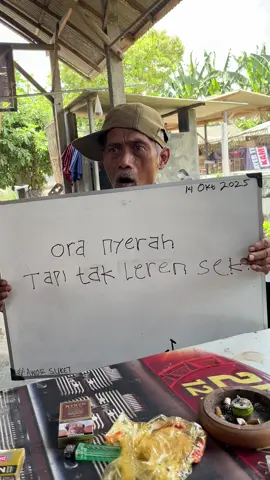 14 Okt 2025
ora nyerah
Tapi tak Leren sek